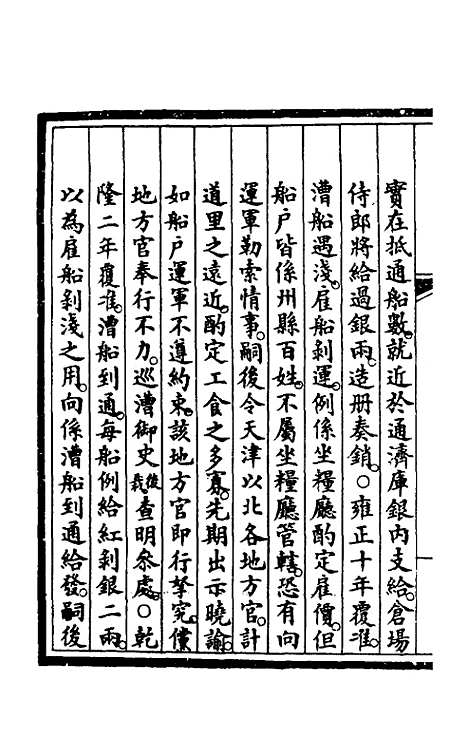 實在抵通船數。就近於通濟庫銀內支給。倉場
侍郎將給過銀兩。造冊奏銷。○雍正十年覆准。
漕船遇淺。雇船剝運。例係坐糧廳酌定雇價。但
船戶皆係州縣百姓。不屬坐糧廳管轄。恐有向
運軍勒索情事。嗣後令天津以北各地方官。計
道里之遠近。酌定工食之多寡。先期出示曉諭。
如船戶運軍不遵約束。該地方官即行拏究。儻
地方官奉行不力。巡漕御史後裁查明參處。○乾
隆二年覆准。漕船到通。每船例給紅剝銀二兩。
以為雇船剝淺之用。向係漕船到通給發。嗣後